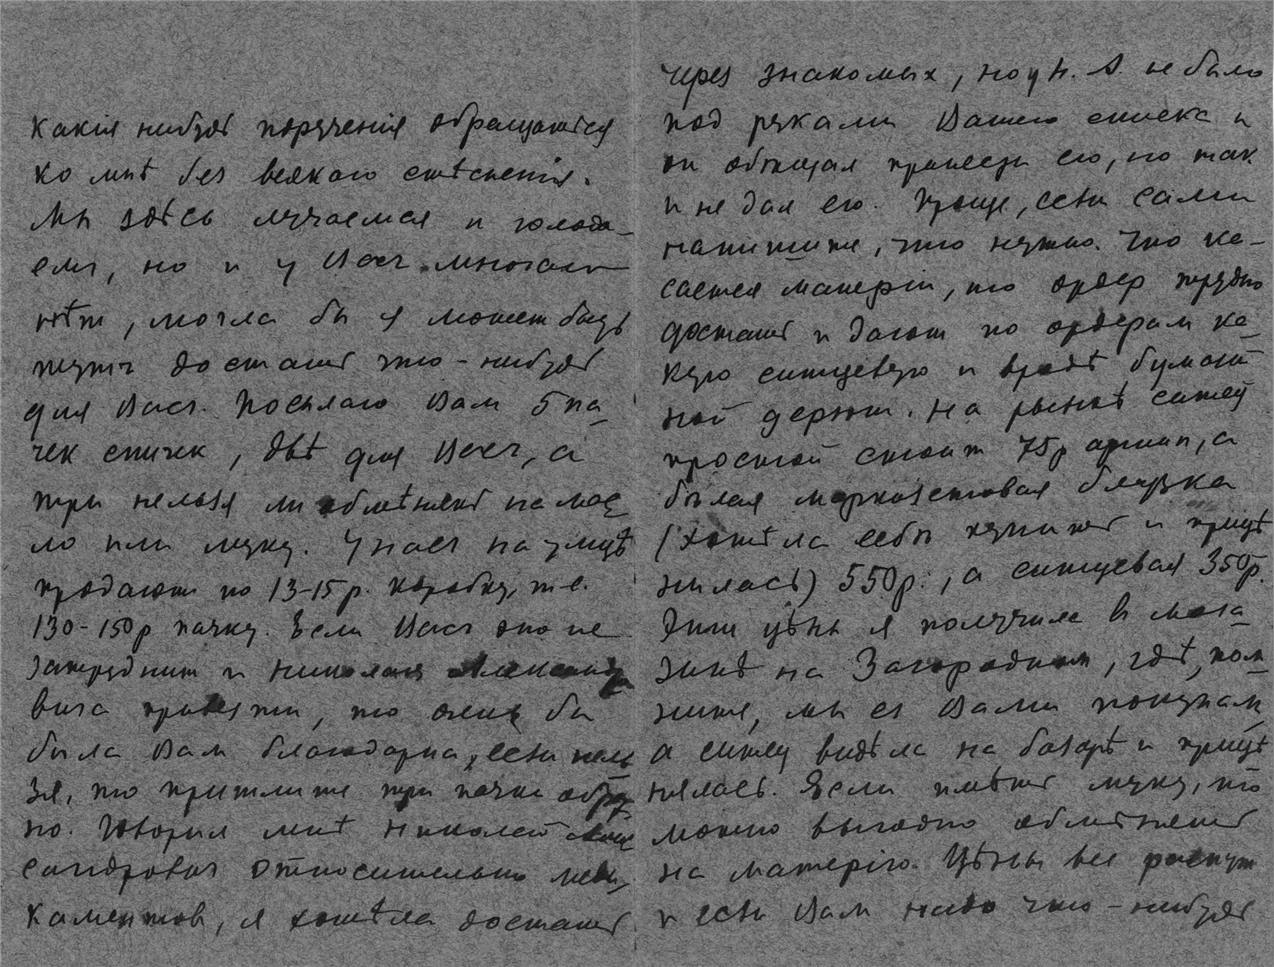 какія нибудь порученія обращаитесь
ко мнѣ без всякаго стѣсненія.
Мы здѣсь мучаемся и голода-
ем, но и у Васъ многаго
нѣт, могла бы я может быть
тут достать что-нибудь
для Васъ. Посылаю Вам 5 па-
чек спичек, двѣ для Васъ, а
три нельзя ли обмѣнять на мас-
ло или муку. У насъ на улицѣ
продают по 13-15 р. коробку, т.е.
130-150 р пачку. Если Васъ это не
затруднит и Николая Александро
вича привезти, то очень бы
была Вам благодарна, если нель
зя, то пришлите три пачки обрат
но. Говорил мнѣ Николай Алек
сандрович относительно меди-
каментов, я хотѣла достать
через знакомых, но у Н. А. не было
под руками Вашего списка и
он обѣщал принести его, но так
и не дал его. Проще, если сами
напишите, что нужно. Что ка-
сается матеріи, то ордер трудно
достать и дают по ордерам ка-
кую ситцевую и вродѣ бумаж
ной дерюги. На рынкѣ ситец
простой стоит 75 р аршин, а
бѣлая маркизетовая блузка
(хотѣла себѣ купить и прицѣ
нилась) 550 р., а ситцевая 350 р.
Эти цѣны я получила в мага-
зинѣ на Загородном, гдѣ, пом-
ните, мы с Вами покупали,
а ситец видѣла на базарѣ и прицѣ
нялась. Если имѣть муку, то
можно выгодно обмѣнять
на матерію. Цѣны все растут
и если Вам надо что-нибудь